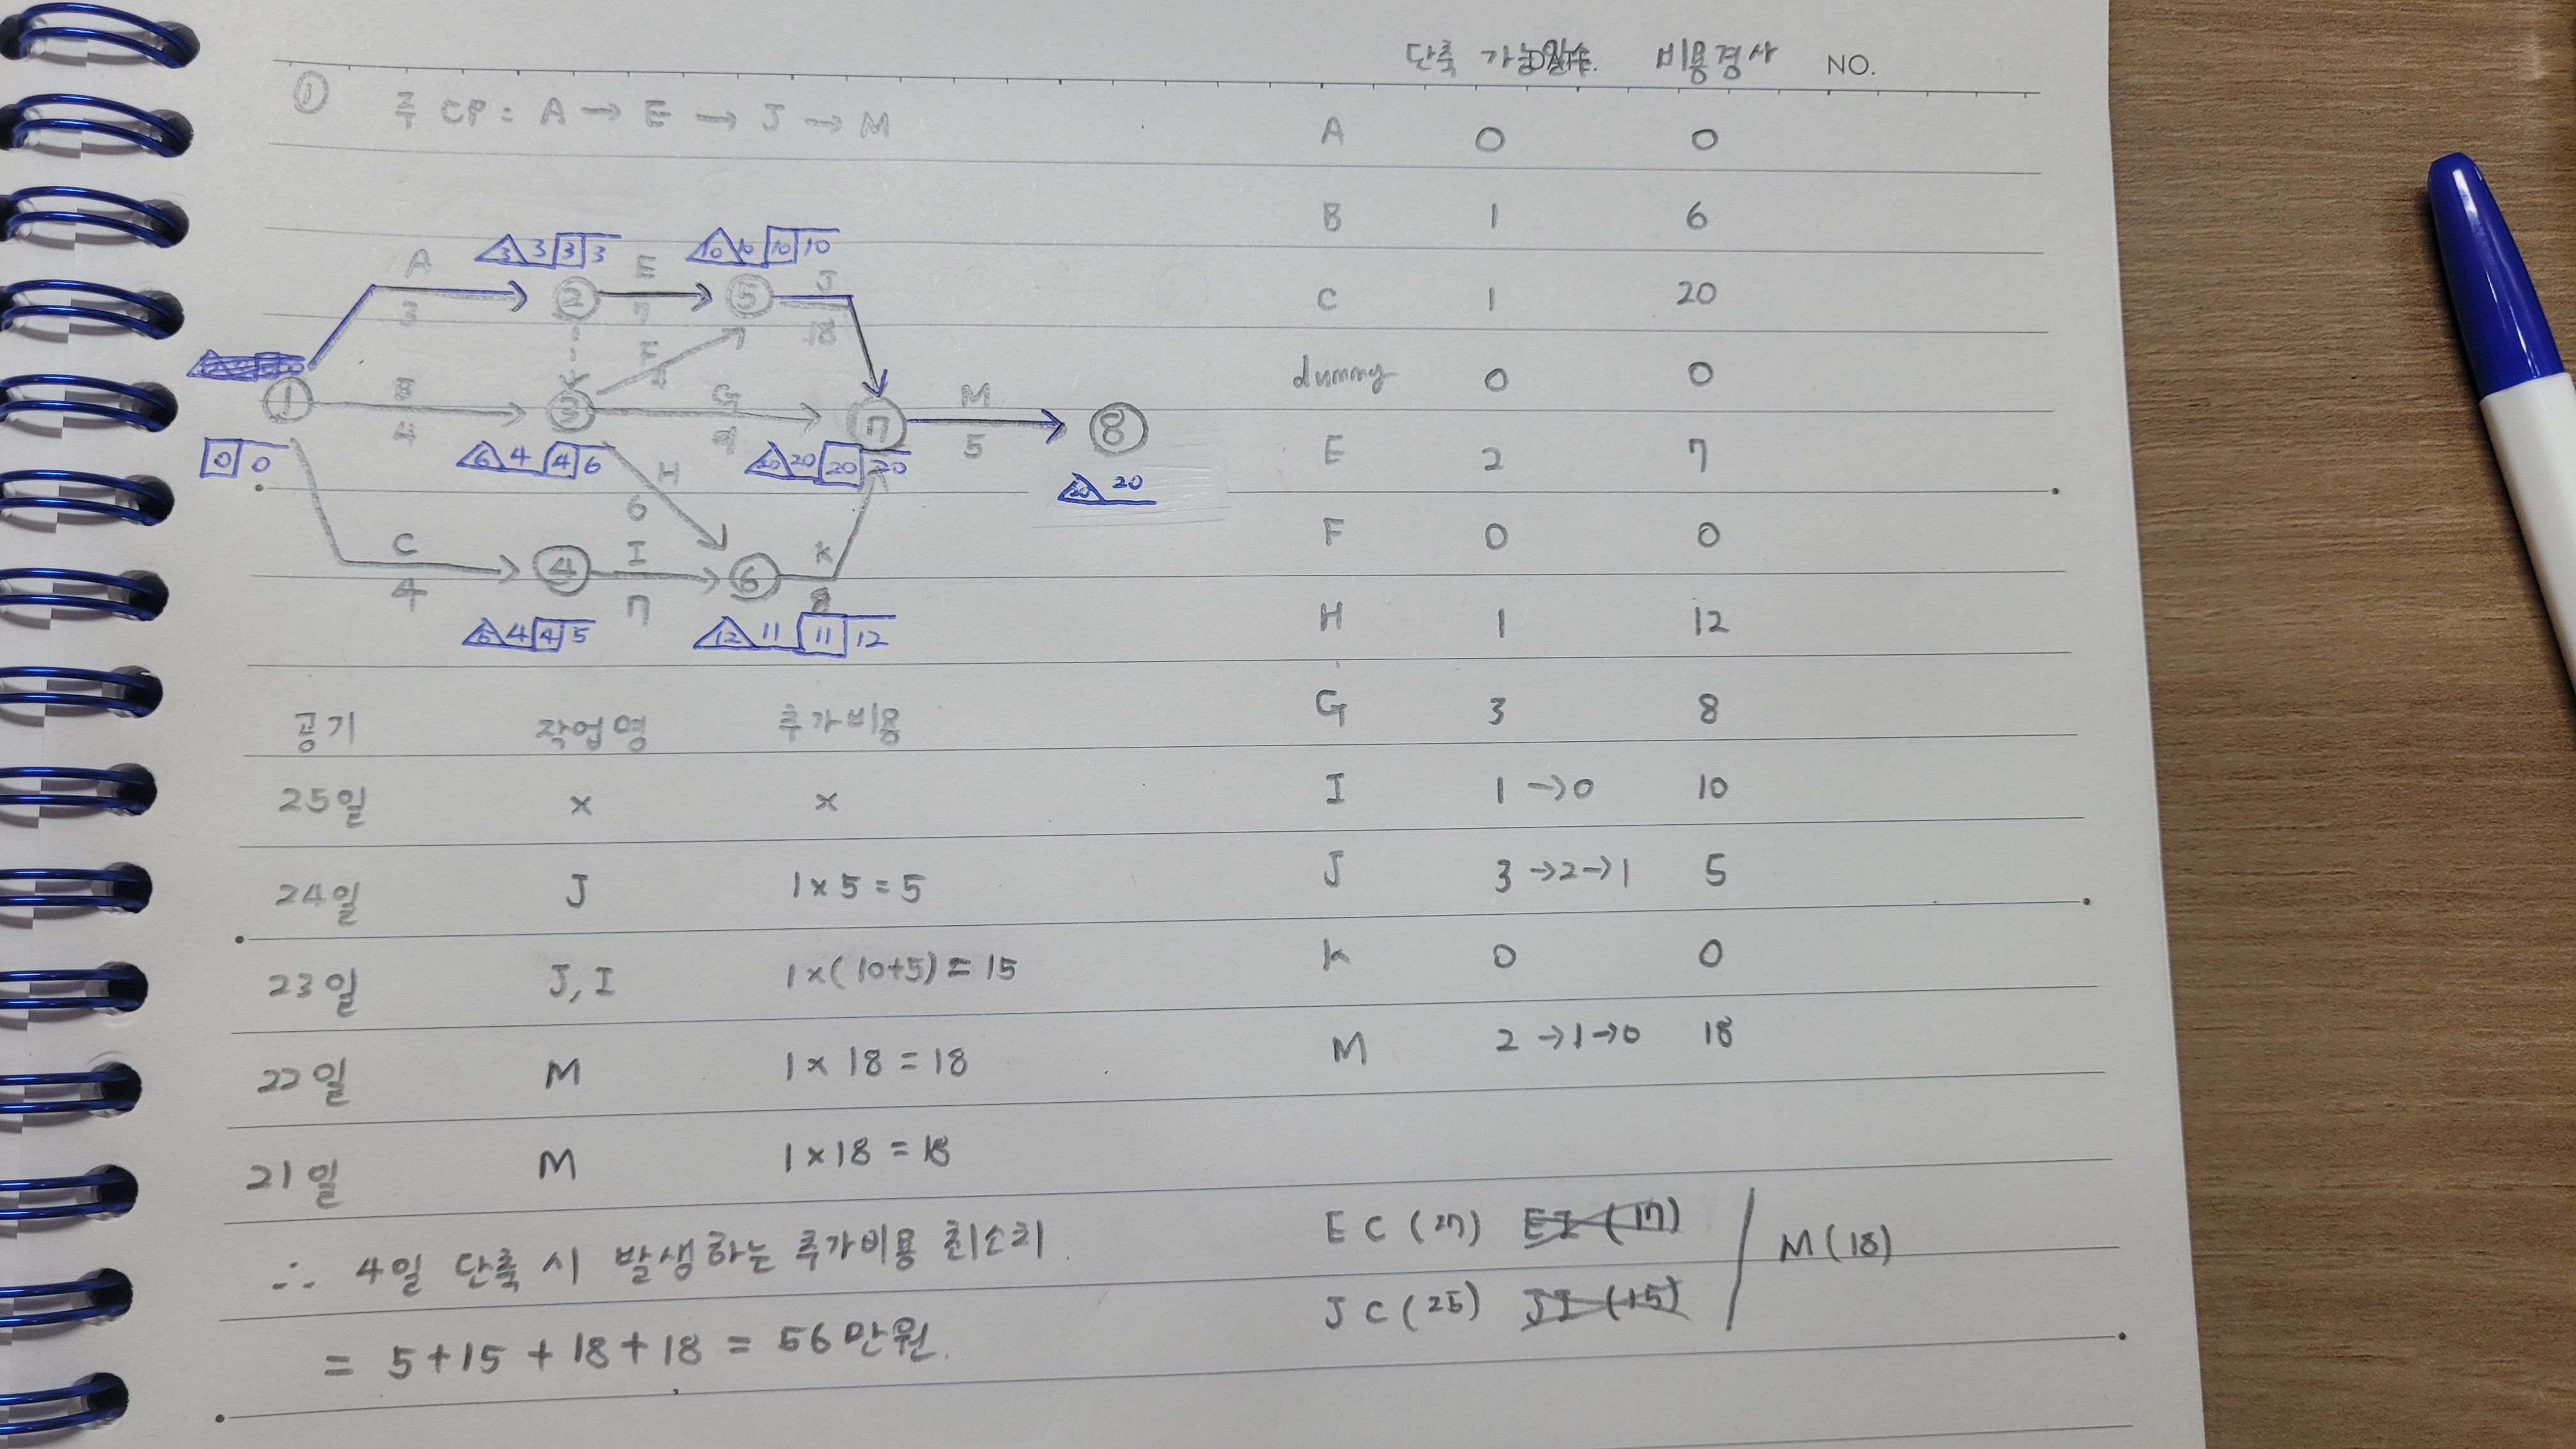 단축 가능일수. 비용경사 NO.
① 주 CP : A → E → J → M
A 0 0
B 1 6
C 1 20
dummy 0 0
E 2 7
F 0 0
H 1 12
G 3 8
I 1 →0 10
J 3 →2→1 5
K 0 0
M 2 →1→0 18
A 3
3 3 3 3
E 7
10 10 10 10
J
②
⑤
F
①
B 4
③
G 9
⑦
M 5
⑧
0 0
6 4 4 6
H 6
20 20 20 20
20 20
C 4
④
I 7
⑥
K 8
4 4 5
12 11 11 12
공기 작업명 추가비용
25일 × ×
24일 J 1×5=5
23일 J, I 1×(10+5)=15
22일 M 1×18=18
21일 M 1×18=18
∴ 4일 단축 시 발생하는 추가비용 최소치
= 5+15+18+18 = 56만원.
E C (27) EI (17) M(18)
J C (25) JI (15)